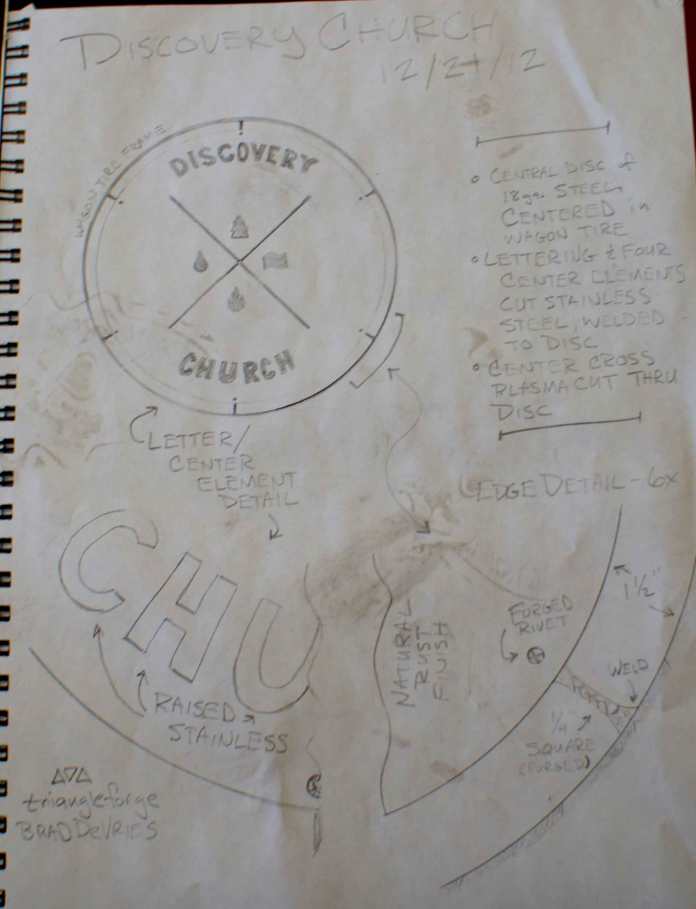 DISCOVERY CHURCH
12/21/12
WAGON TIRE FRAME
DISCOVERY
CHURCH
• CENTRAL DISC of
18ga. STEEL
CENTERED in
WAGON TIRE
• LETTERING & FOUR
CENTER ELEMENTS
CUT STAINLESS
STEEL, WELDED
TO DISC
• CENTER CROSS
PLASMA CUT THRU
DISC
LETTER/
CENTER
ELEMENT
DETAIL
EDGE DETAIL - 6x
CHU
RAISED
STAINLESS
NATURAL
RUST
FINISH
FORGED
RIVET
1 1/2"
WELD
1/4
SQUARE
(FORGED)
triangleforge
BRAD DeVRIES